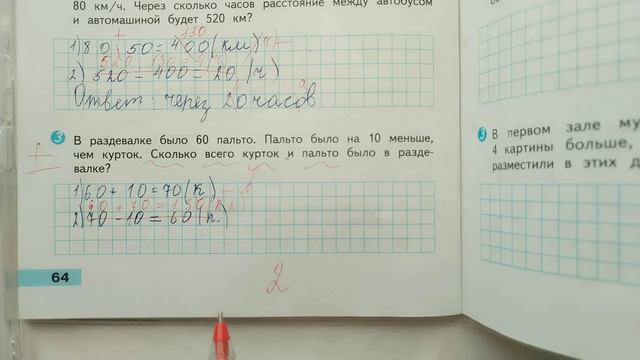 80 км/ч. Через сколько часов расстояние между автобусом
и автомашиной будет 520 км?
130
1) 80 50 = 400 (км)
520 - 130 = 4 ч
2) 520 - 400 = 20 (ч)
Ответ: через 20 часов
3 В раздевалке было 60 пальто. Пальто было на 10 меньше,
чем курток. Сколько всего курток и пальто было в разде-
валке?
1) 60 + 10 = 70 (к)
60 + 70 = 130
2) 70 - 10 = 60 (п.)
64
2
3 В первом зале
4 картины больше,
разместили в этих